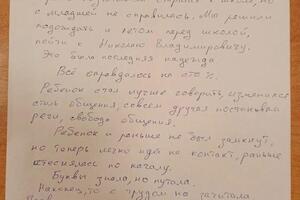 с младшей не справилась. Мы решили
подождать и летом перед школой,
пойти к Николаю Владимировичу.
Это была последняя надежда
Всё оправдалось на сто %.
Ребёнок стал лучше говорить, изменился
стиль общения, совсем другая постановка
речи, свобода общения.
Ребёнок и раньше не был замкнут,
но теперь легко идёт на контакт, раньше
стеснялась по началу.
Буквы знала, но путала.
Наконец, то с трудом но начитала